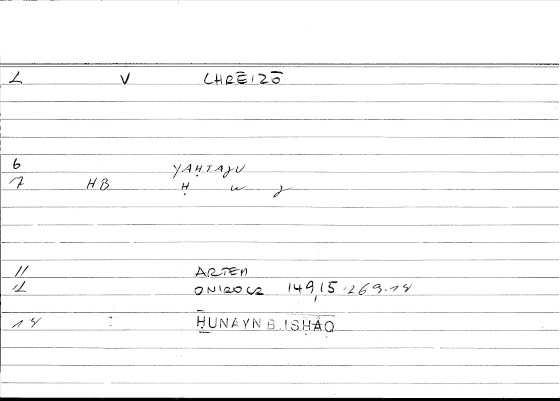 1 V CHRĒIZŌ
6
YAḤTAJU
7 HB Ḥ w j
11 ARTEM
12 ONIROCR 149,15 · 269.14
14 : ḤUNAYN B. ISḤĀQ